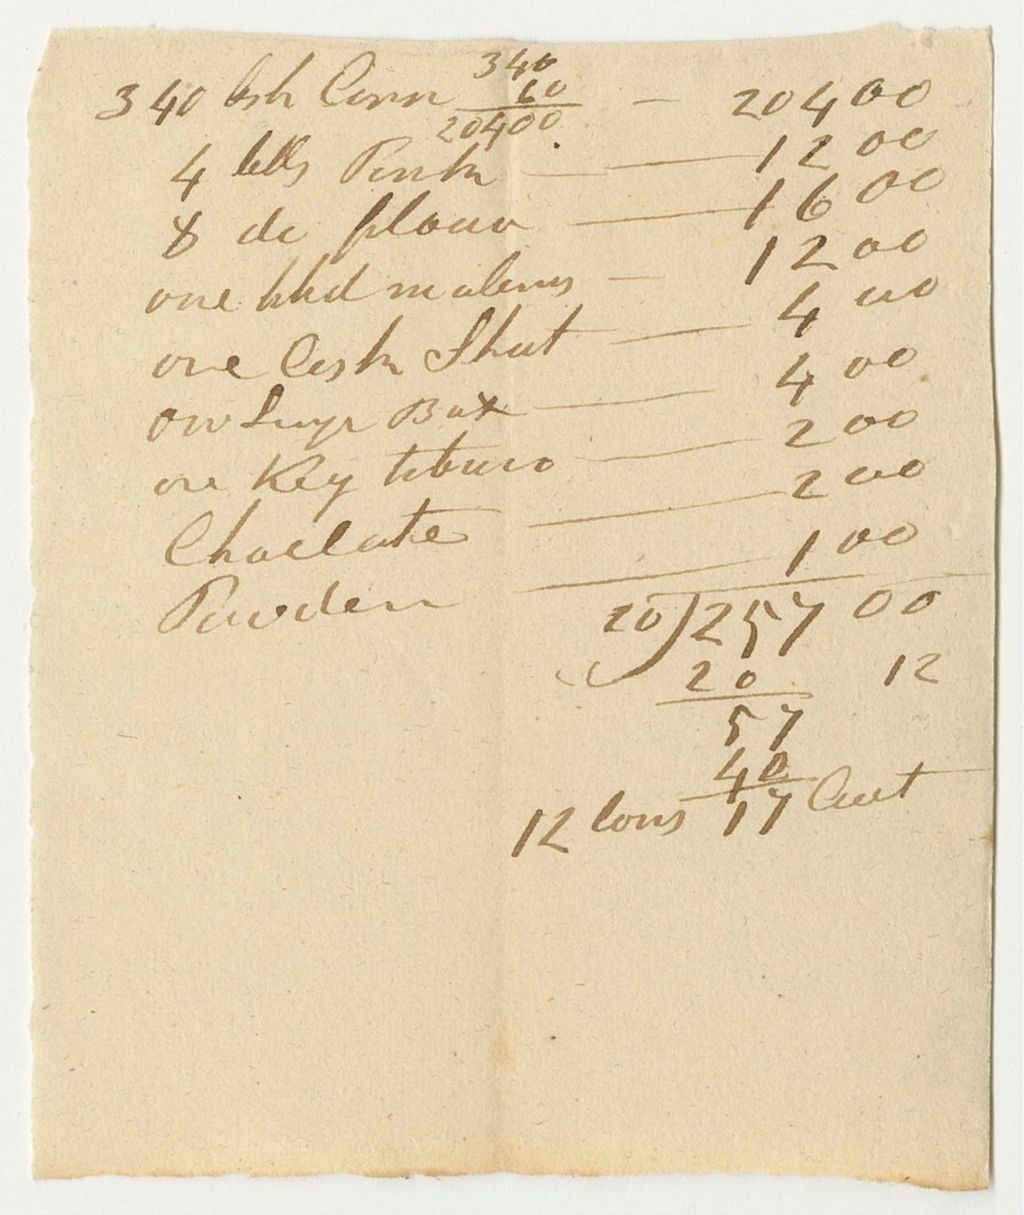 340
60
20400
340 bsh Corn — 20400
4 bbls Pork — 12 00
8 do flour — 16 00
one hhd molases — 12 00
one Cask Shot — 4 00
one Sugr Box — 4 00
one Key tobaco — 2 00
Choclate — 2 00
Powder — 1 00
20)257 00
20 12
57
40
12 tons 17 Cwt